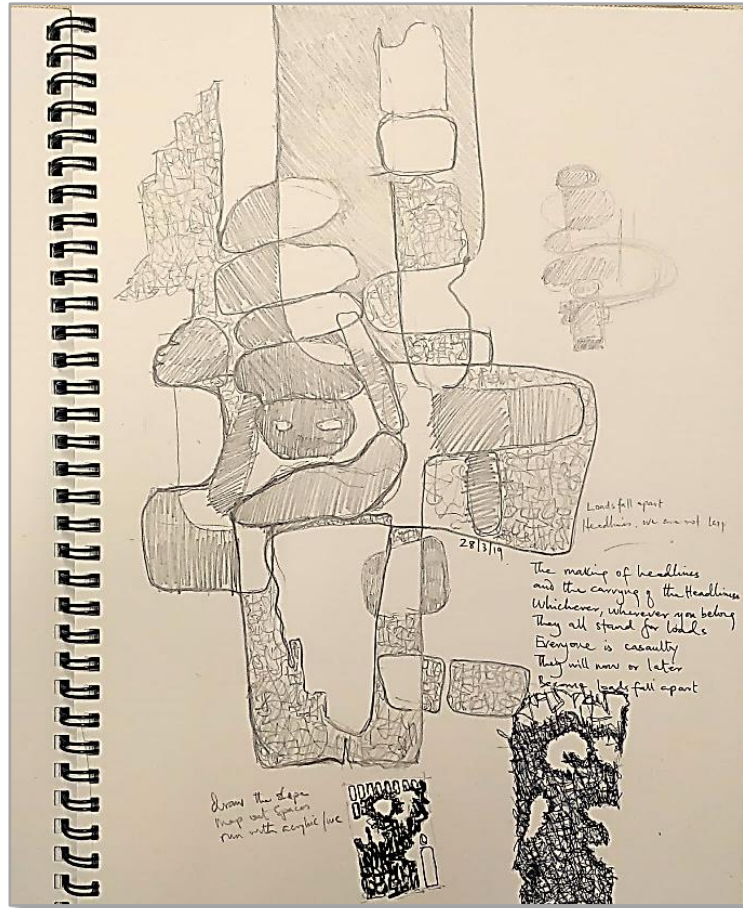 Loads fall apart
Headlines, we are not
28/3/19
The making of headlines
and the carrying of the Headlines
Whichever, wherever you belong
They all stand for loads
Everyone is casualty
They will now or later
Become loads fall apart
draw the shape
map out spaces
run with acrylic